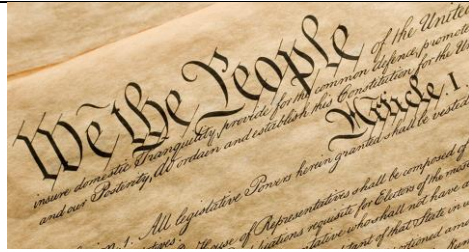 We the People of the United
insure domestic Tranquility, provide for the common defence, promote
and our Posterity, do ordain and establish this Constitution for the Uni
Article. I.
1. All legislative Powers herein granted shall be vested
House of Representatives shall be composed of
requisite for Electors of the most
who shall not have
of that State in